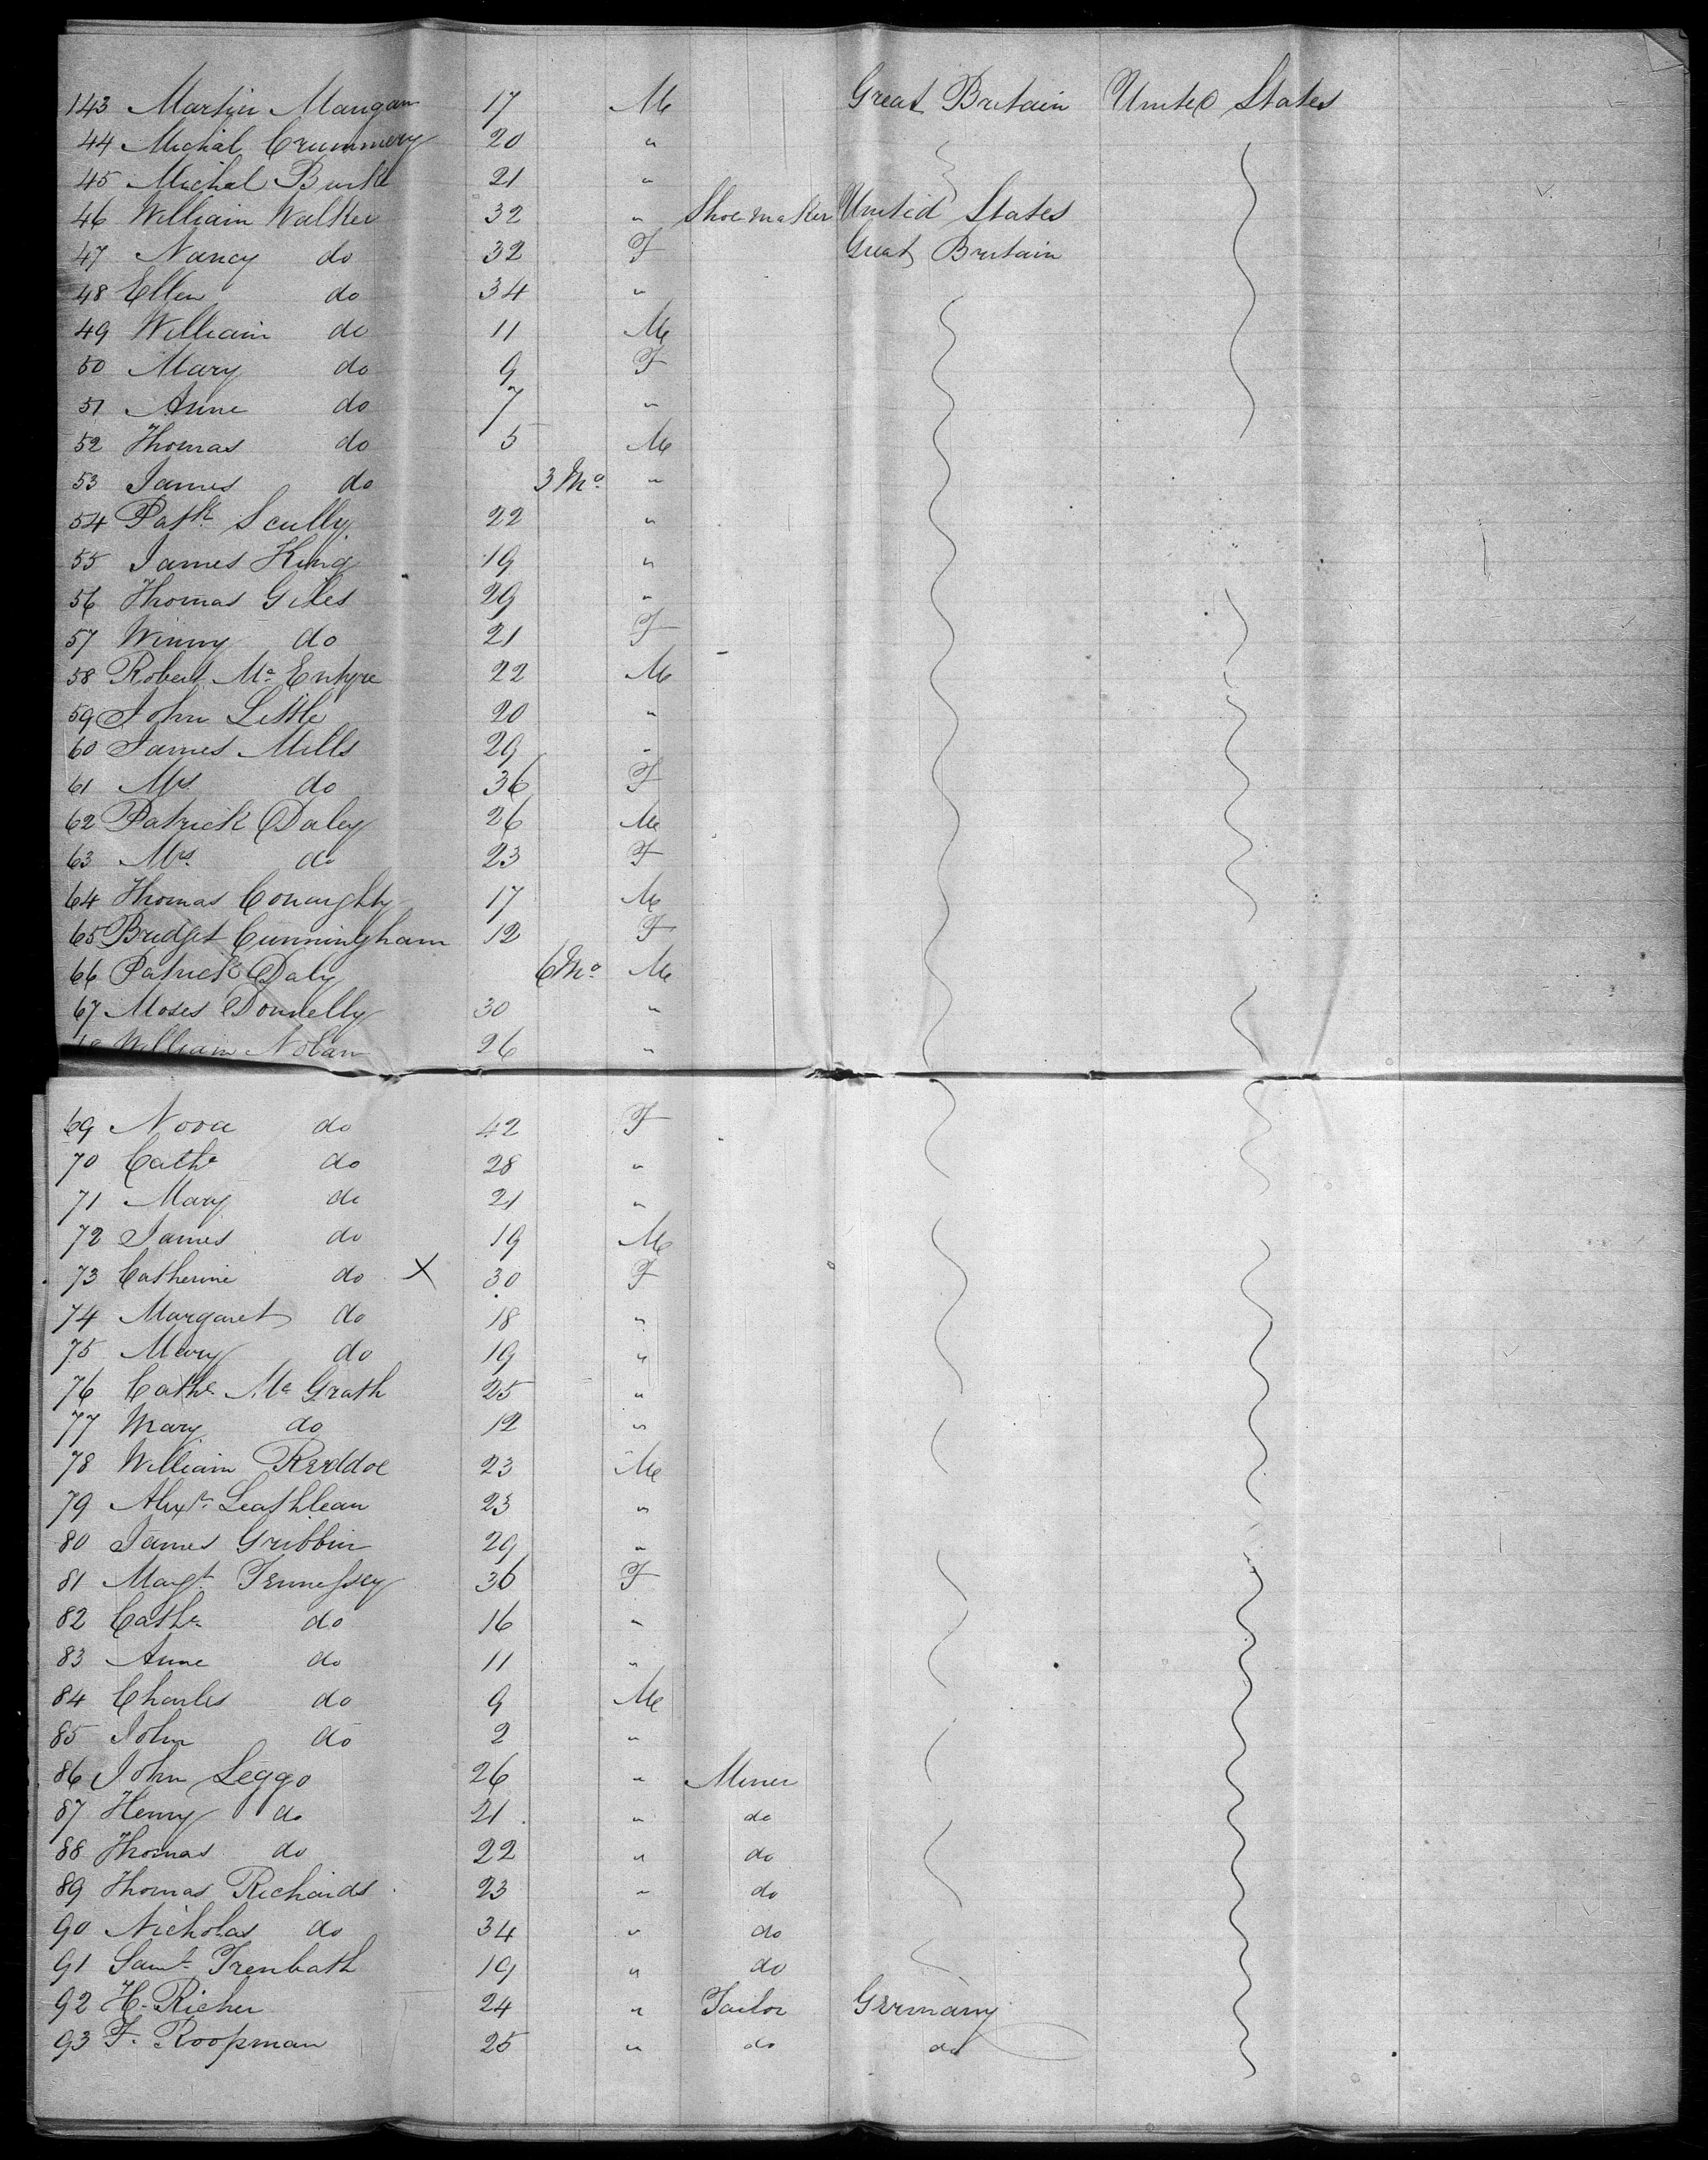 143 Martin Mangan 17 M Great Britain United States
44 Michal Crummery 20 "
45 Michal Burke 21 "
46 William Walker 32 " Shoemaker United States
47 Nancy do 32 F Great Britain
48 Ellen do 34 "
49 William do 11 M
50 Mary do 9 F
51 Anne do 7 "
52 Thomas do 5 M
53 James do 3 Mo "
54 Patk Scully 22 "
55 James King 19 "
56 Thomas Giles 29 "
57 Winny do 21 F
58 Robert Mc Entyre 22 M
59 John Little 20 "
60 James Mills 29 "
61 Mrs do 36 F
62 Patrick Daley 26 M
63 Mrs do 23 F
64 Thomas Conaughty 17 M
65 Bridget Cunningham 12 F
66 Patrick Daly 6 Mo M
67 Moses Donnelly 30 "
William Nolan 26 "
69 Nora do 42 F
70 Cathe do 28 "
71 Mary do 21 "
72 James do 19 M
73 Catherine do X 30 F
74 Margaret do 18 "
75 Mary do 19 "
76 Cathe Mc Grath 25 "
77 Mary do 12 "
78 William Reddoe 23 M
79 Alexr Leathlean 23 "
80 James Gribbin 29 "
81 Margt Tennessey 36 F
82 Cathe do 16 "
83 Anne do 11 "
84 Charles do 9 M
85 John do 2 "
86 John Leggo 26 " Miner
87 Henry do 21 " do
88 Thomas do 22 " do
89 Thomas Richards 23 " do
90 Nicholas do 34 " do
91 Saml Trenbath 19 " do
92 H. Richer 24 " Tailor Germany
93 F. Roopman 25 " do do